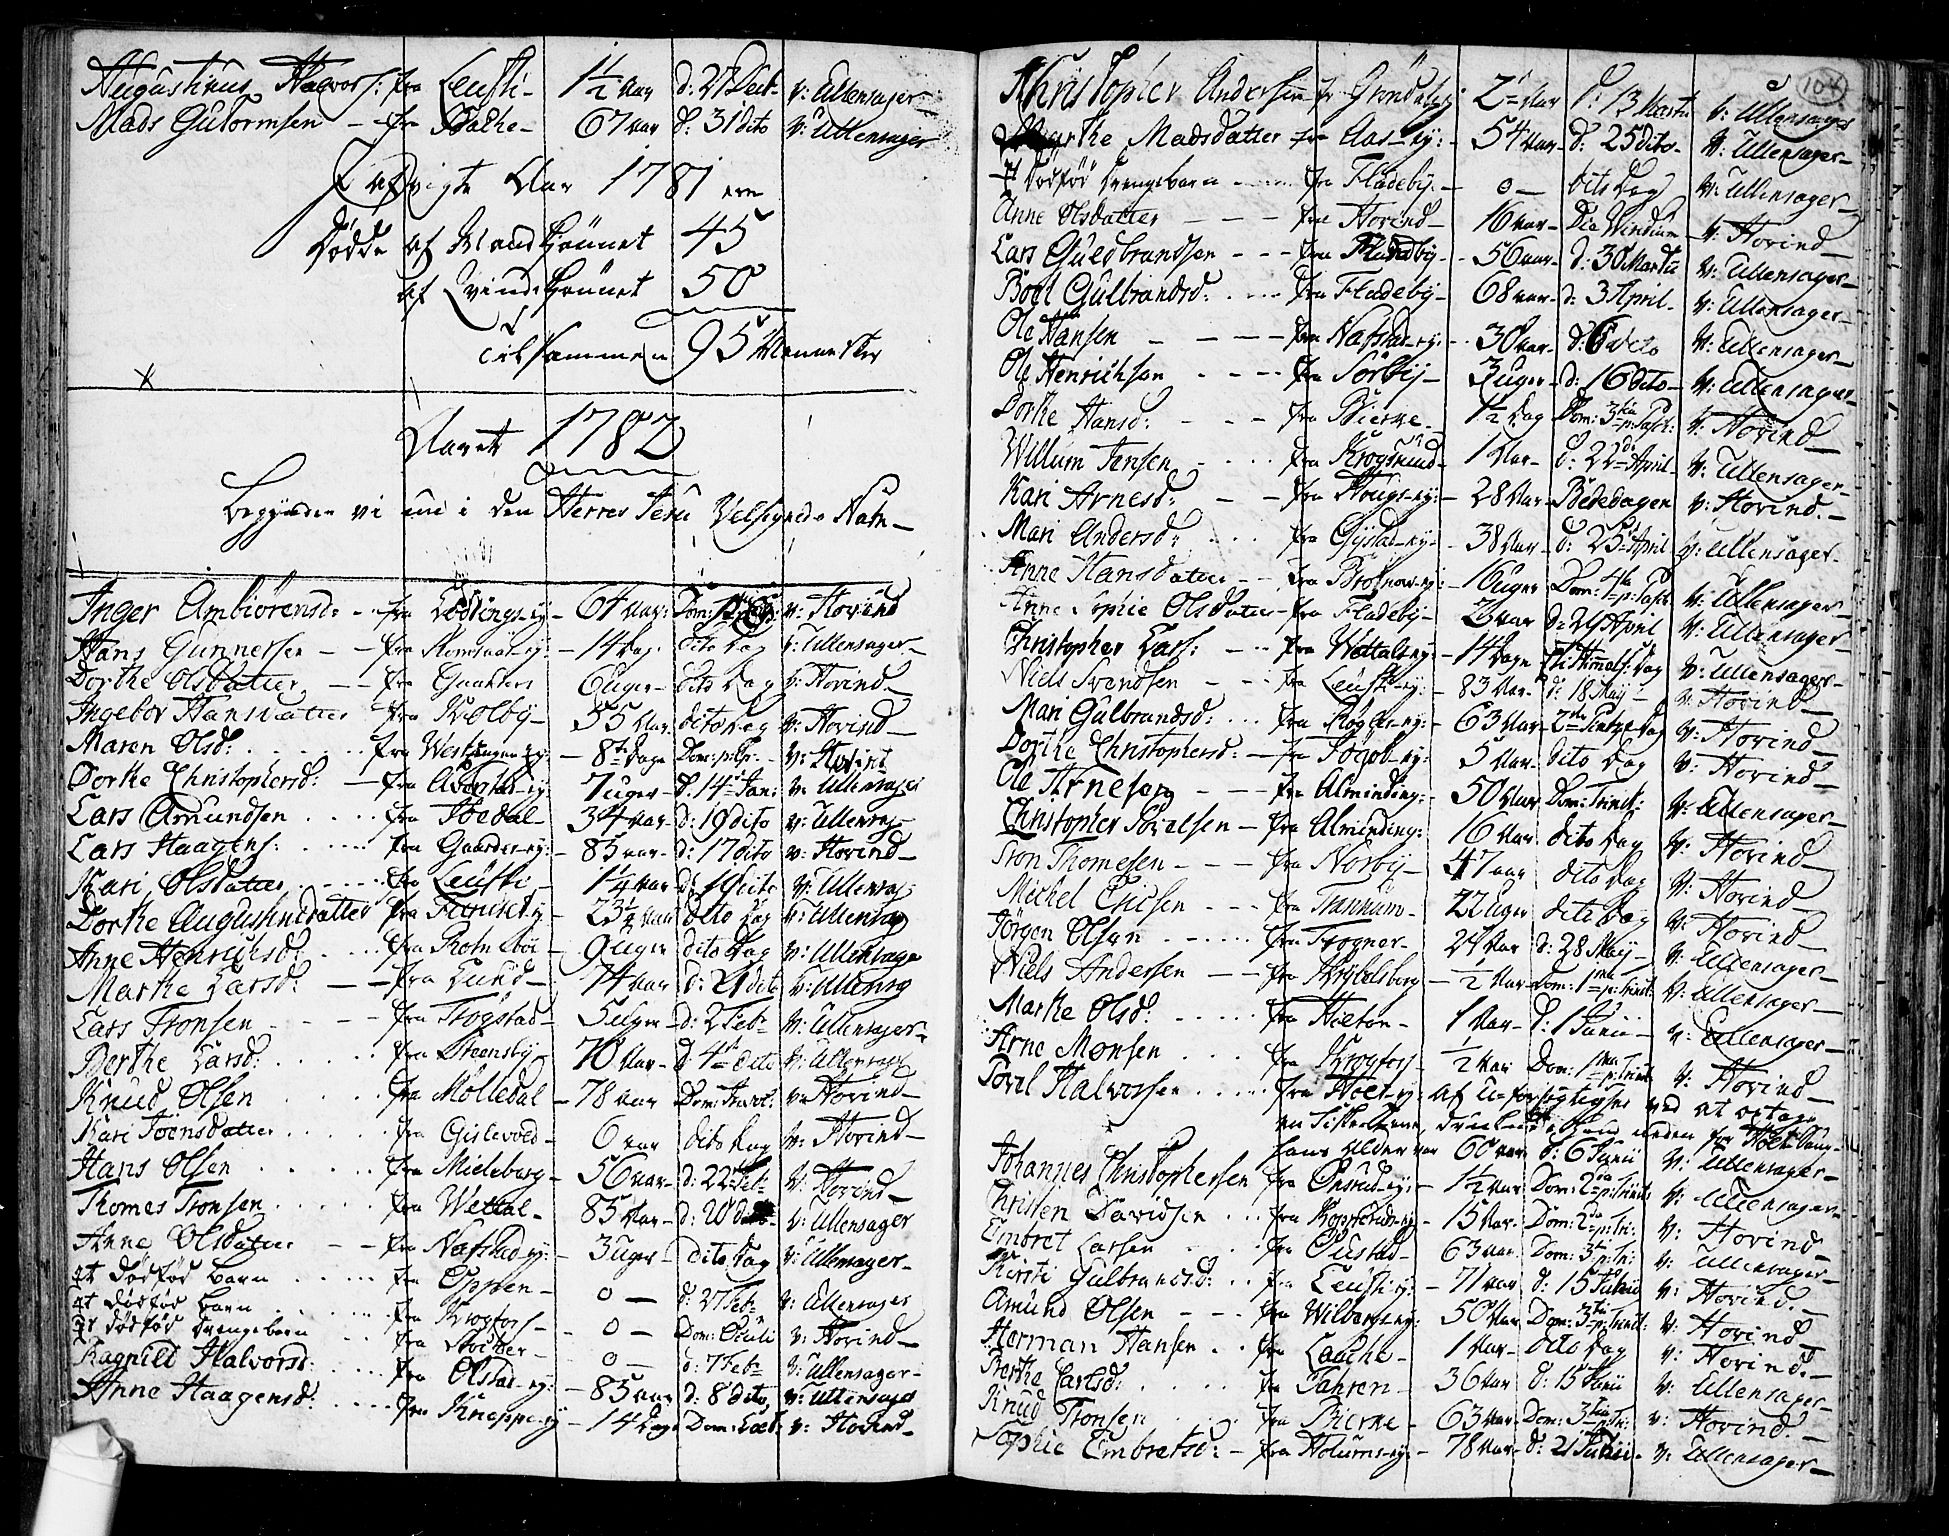 Augustinus Halvors: fra Leufti- 1½ Aar d: 27 Dect. v: Ullensager-
Mads Gutormsen - fra Bache- 67 aar d: 31 dito v: Ullensager
I afvigte Aar 1781 ere
Dødde af Mandkiønnet 45
af Qvindekiønnet 50
Tilsammen 95 Mennisker
Aaret 1782
begynder vi nu i den Herres Jesu Velsignede Navn-
Inger Ambiørensd: - fra 64 aar: v: Hovind
Hans Gunnersen - - fra 14 Dag: dito Dag v: Ullensager-
Dorthe Olsdatter - - fra 6 uger- dito Dag v: Hovind-
Ingebor Hansdatter fra Holby- 55 Aar dito Dag v: Hovind-
Maren Olsd: fra 8te Dage v: Hovind
Dorthe Christophersd: - fra 7 uger- d: 14 Jan: v: Ullensager
Lars Amundsen fra 34 aar- d: 19 dito v: Ullensag
Lars Haagens: fra Gaarder-ey: - 83 aar- d: 17 dito v: Hovind-
Kari Olsdatter fra Leufti- 1¼ aar d: 19 dito v: Ullensag
Dorthe Augustinsdatter fra 23½ dito Dag v: Ullensag
Anne Henrichsd: fra 9 uger dito Dag v: Ullensager
Marthe Larsd: - - fra Lund- 74 aar d: 21 dito v: Ullensag
Lars Tronsen - - - fra Trøgstad- 5 uger- d: 2 Febr v: Ullensager-
Berthe Larsd: fra Steensby 70 aar- d: 4 dito v: Ullensager
Knud Olsen fra Mølledal - 78 aar v: Hovind-
Kari Joensdatter fra Gislevold- 6 aar dito Dag v: Hovind-
Hans Olsen fra Mieleborg- 56 aar- d: 22 Feb: v: Hovind-
Thomes Tronsen fra Wettal- 85 aar- d: 20 dito v: Ullensager
Anne Olsdatter - - fra Nafstad-ey: - 3 uger- dito Dag v: Ullensager-
et dødfød barn fra Oppen- 0 - d: 27 Feb: v: Ullensager
et dødfød barn fra Krogfoss- - 0 - Dom: Oculi v: Hovind-
et dødfød drengebarn fra 0 - d: 7 Feb: v: Ullensager-
Ragnild Halvorsd: fra Olstad-ey: - 85 aar d: 8 dito v: Ullensager
Anne Haagensd: fra Kneppe-ey - 14 Dage v: Hovind-
104
Christopher Andersen fr Grøndaley: 2 Aar d: 13 Martii v: Ullensager
Marthe Madsdatter fra Aas-ey: - 54 Aar- d: 25 dito- v: Ullensager-
et dødfød drengebarn fra Fladeby- - 0 - dito Dag v: Ullensager-
Anne Olsdatter - - - fra Hovind- 16 aar- v: Hovind-
Lars Guldbrandsen - - - fra Fladeby- - 56 aar- d: 30 Martii v: Ullensager-
Boel Gulbrandsd: fra Fladeby- 68 aar- d: 3 April- v: Ullensager-
Ole Hansen - - - - fra Nafstad-ey: - 30 aar- d: 6 dito v: Ullensager-
Ole Henrichsen - - - fra Sørby- 3 uger- d: 16 dito- v: Ullensager-
Dorthe Hansd: - - - fra Bierke- 1½ Dag Dom: 3tia p: Pasch: v: Hovind-
Willum Jensen fra Krogsrund- 1 Aar- d: 22 April- v: Ullensager-
Kari Arnesd: - - fra Hougs-ey: - 28 Aar- Bededagen v: Hovind. -
Mari Andersd: fra - 38 Aar- d: 25 April v: Ullensager-
Anne Hansdatter - - fra 16 uger Dom: 4ta p: Pasch v: Ullensager-
Anne Sophie Olsdatter- fra Fladeby- v: Ullensager-
Christopher Lars: - - - fra Wettals-ey - 14 Dage v: Ullensager-
Niels Svendsen - - - fra Leufti-ey: - 83 Aar- d: 18 May- v: Hovind-
Mari Gulbrandsd: fra 63 Aar- v: Hovind-
Dorthe Christophersd: - fra 5 Aar- dito Dag v: Hovind-
Ole Arnesen - - - fra Alminding: - 50 Aar Dom: Trinit: v: Ullensager-
Christopher Povelsen - fra Alminding: 16 Aar dito Dag v: Hovind-
Tron Thomesen - - - fra Norby- 47 aar dito Dag v: Hovind-
Michel Ericsen - - - fra Tranhum- 22 uger dito Dag v: Hovind-
Jørgen Olsen fra Trogner- 24 Aar d: 28 May- v: Ullensager-
Niels Andersen - - fra - ½ Aar- Dom: 1ma p: Trinit: v: Ullensager-
Marthe Olsd: fra Hielton- 1 Aar- d: 1 Junii - v: Ullensager-
Arne Monsen fra Krogfoss- ½ Aar Dom: 1ma p: Trinit v: Hovind-
Povel Halvorsen fra Hoel-ey: af U-forsigtighed ved at optage
en neden for Hoel
hans Alder var 60 aar d: 6 Junii v: Ullensager-
Johannes Christophersen fra Onsrud-ey: - 1½ aar Dom: 2da p: Trinit: v: Ullensager-
Christen Davidsen fra 15 Aar- Dom: 2da p: Tri: v: Hovind-
Embret Larsen fra 63 aar Dom: 3tia p: Tri: v: Ullensager-
Kirsti Gulbrandsd: fra Leufti-ey: - 71 aar d: 15 Junii v: Hovind. -
Amund Olsen - - - fra Wilbergs-ey: 50 Aar Dom: 3tia p: Trinit: v: Hovind-
Herman Hansen fra Lauche- 1 Aar- dito Dag v: Hovind. -
Berthe Carlsd: fra 36 Aar d: 15 Junii v: Ullensager-
Knud Tronsen fra Bierke- 63 Aar- Dom: 3tia p: Tri: v: Hovind. -
Sophie Embretsd: - fra Holums-ey: - 78 Aar- d: 21 Junii- v: Ullensager-